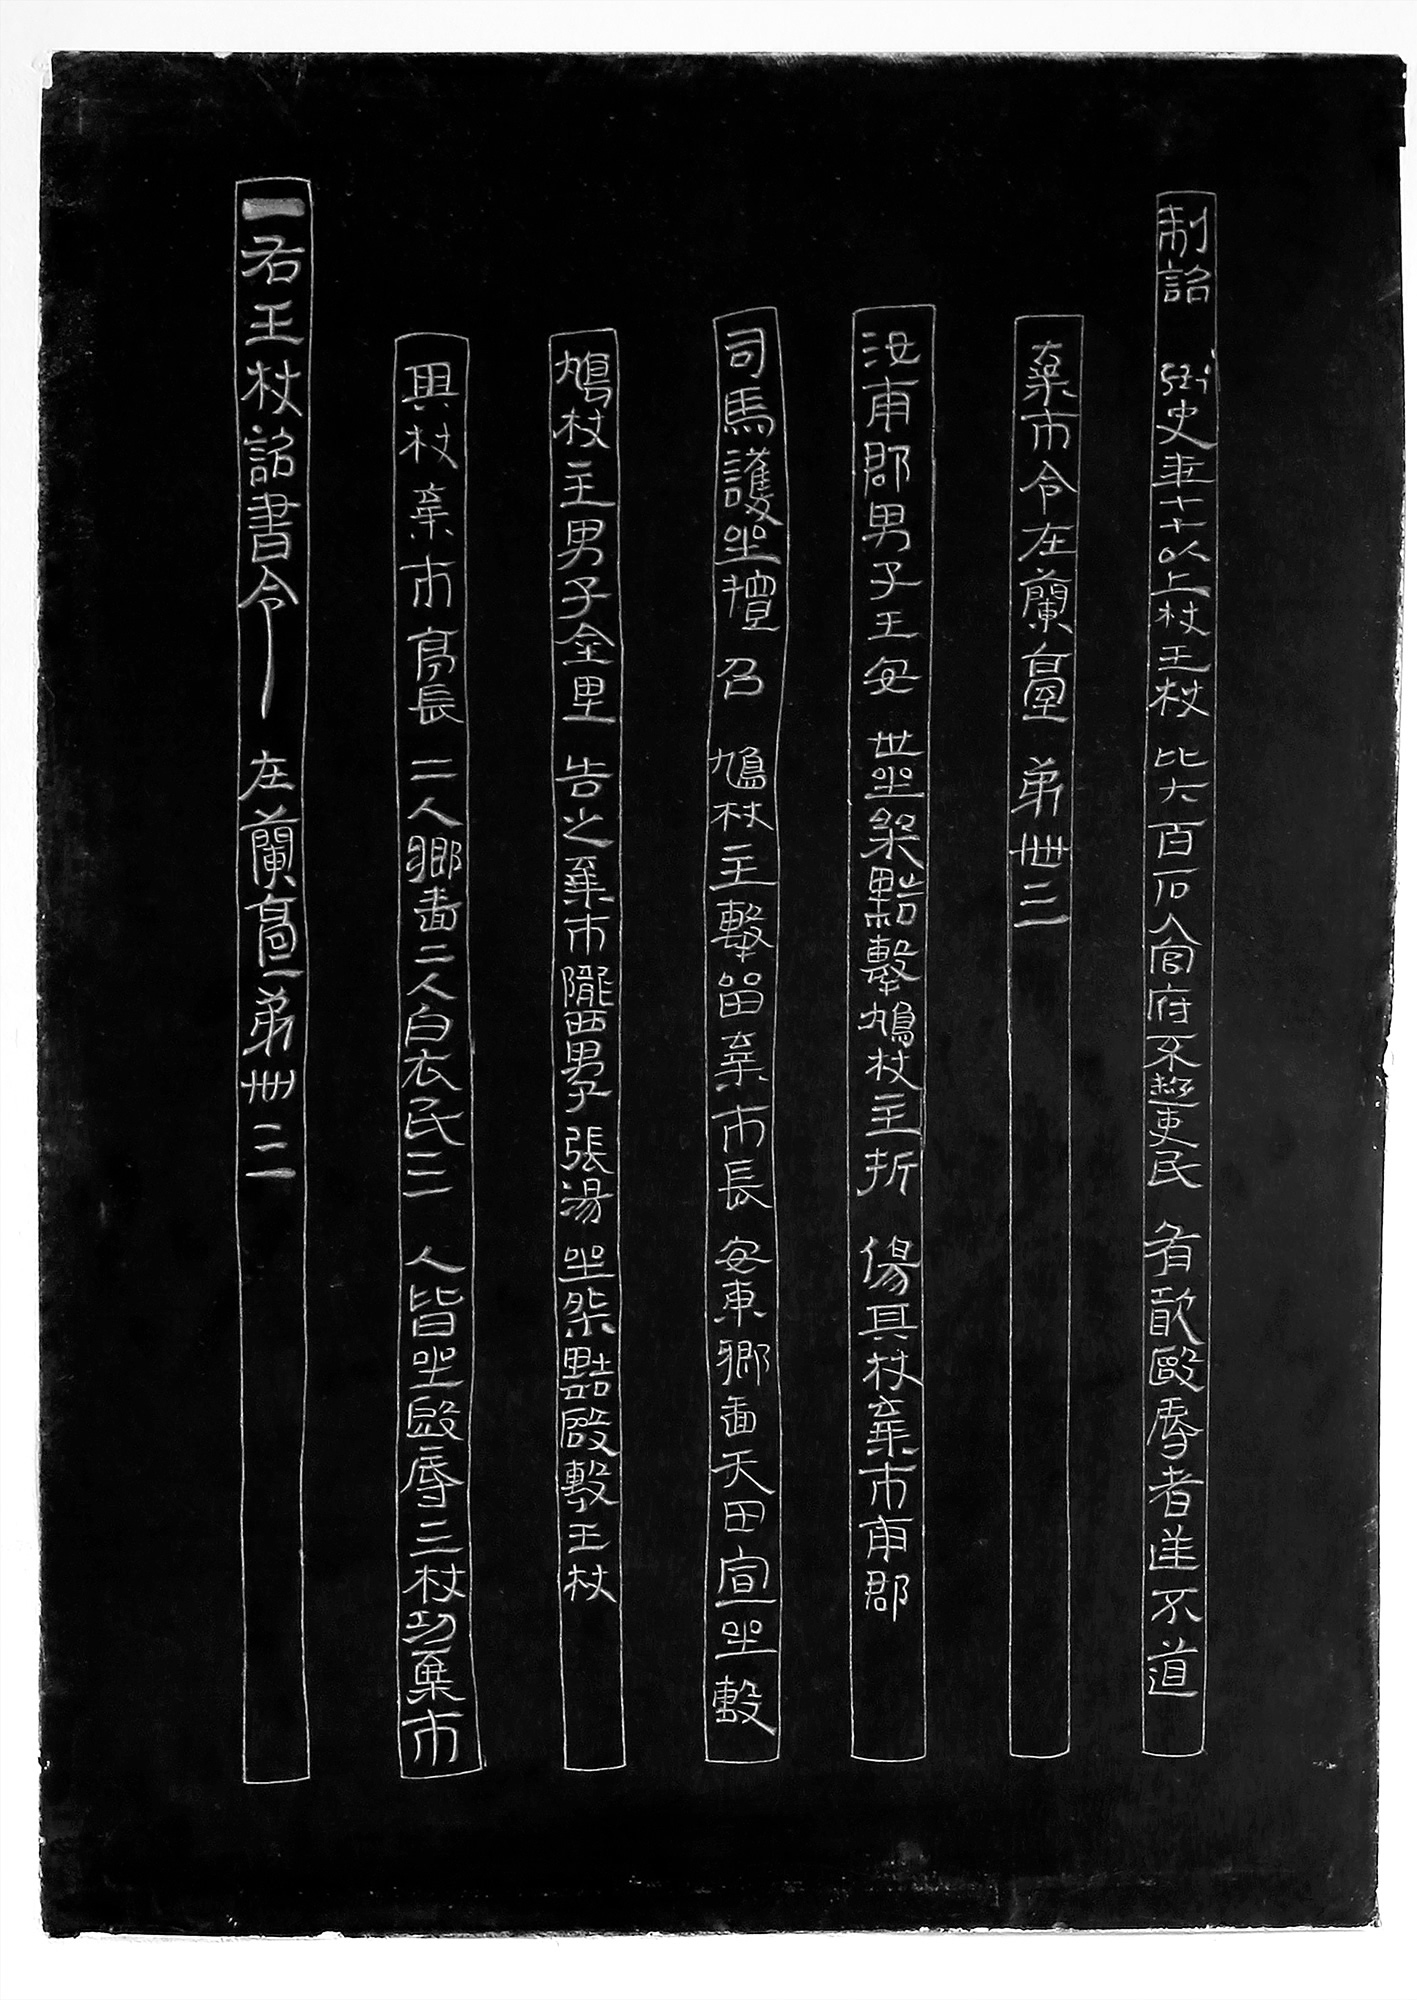 制詔 御史年七十以上杖王杖 比六百石入官府不趨吏民 有敢毆辱者逆不道
棄市令在蘭臺 弟卌三
汝南郡男子王安 世坐桀黠擊鳩杖主折 傷其杖棄市南郡
司馬護坐擅召 鳩杖主擊留棄市長 安東鄉嗇夫田宣坐毄
鳩杖主男子金里 告之棄市隴西男子張湯 坐桀黠毆擊王杖
其杖棄市亭長 二人鄉嗇二人白衣民三 人皆坐毆辱王杖功棄市
右王杖詔書令 在蘭臺弟卌三